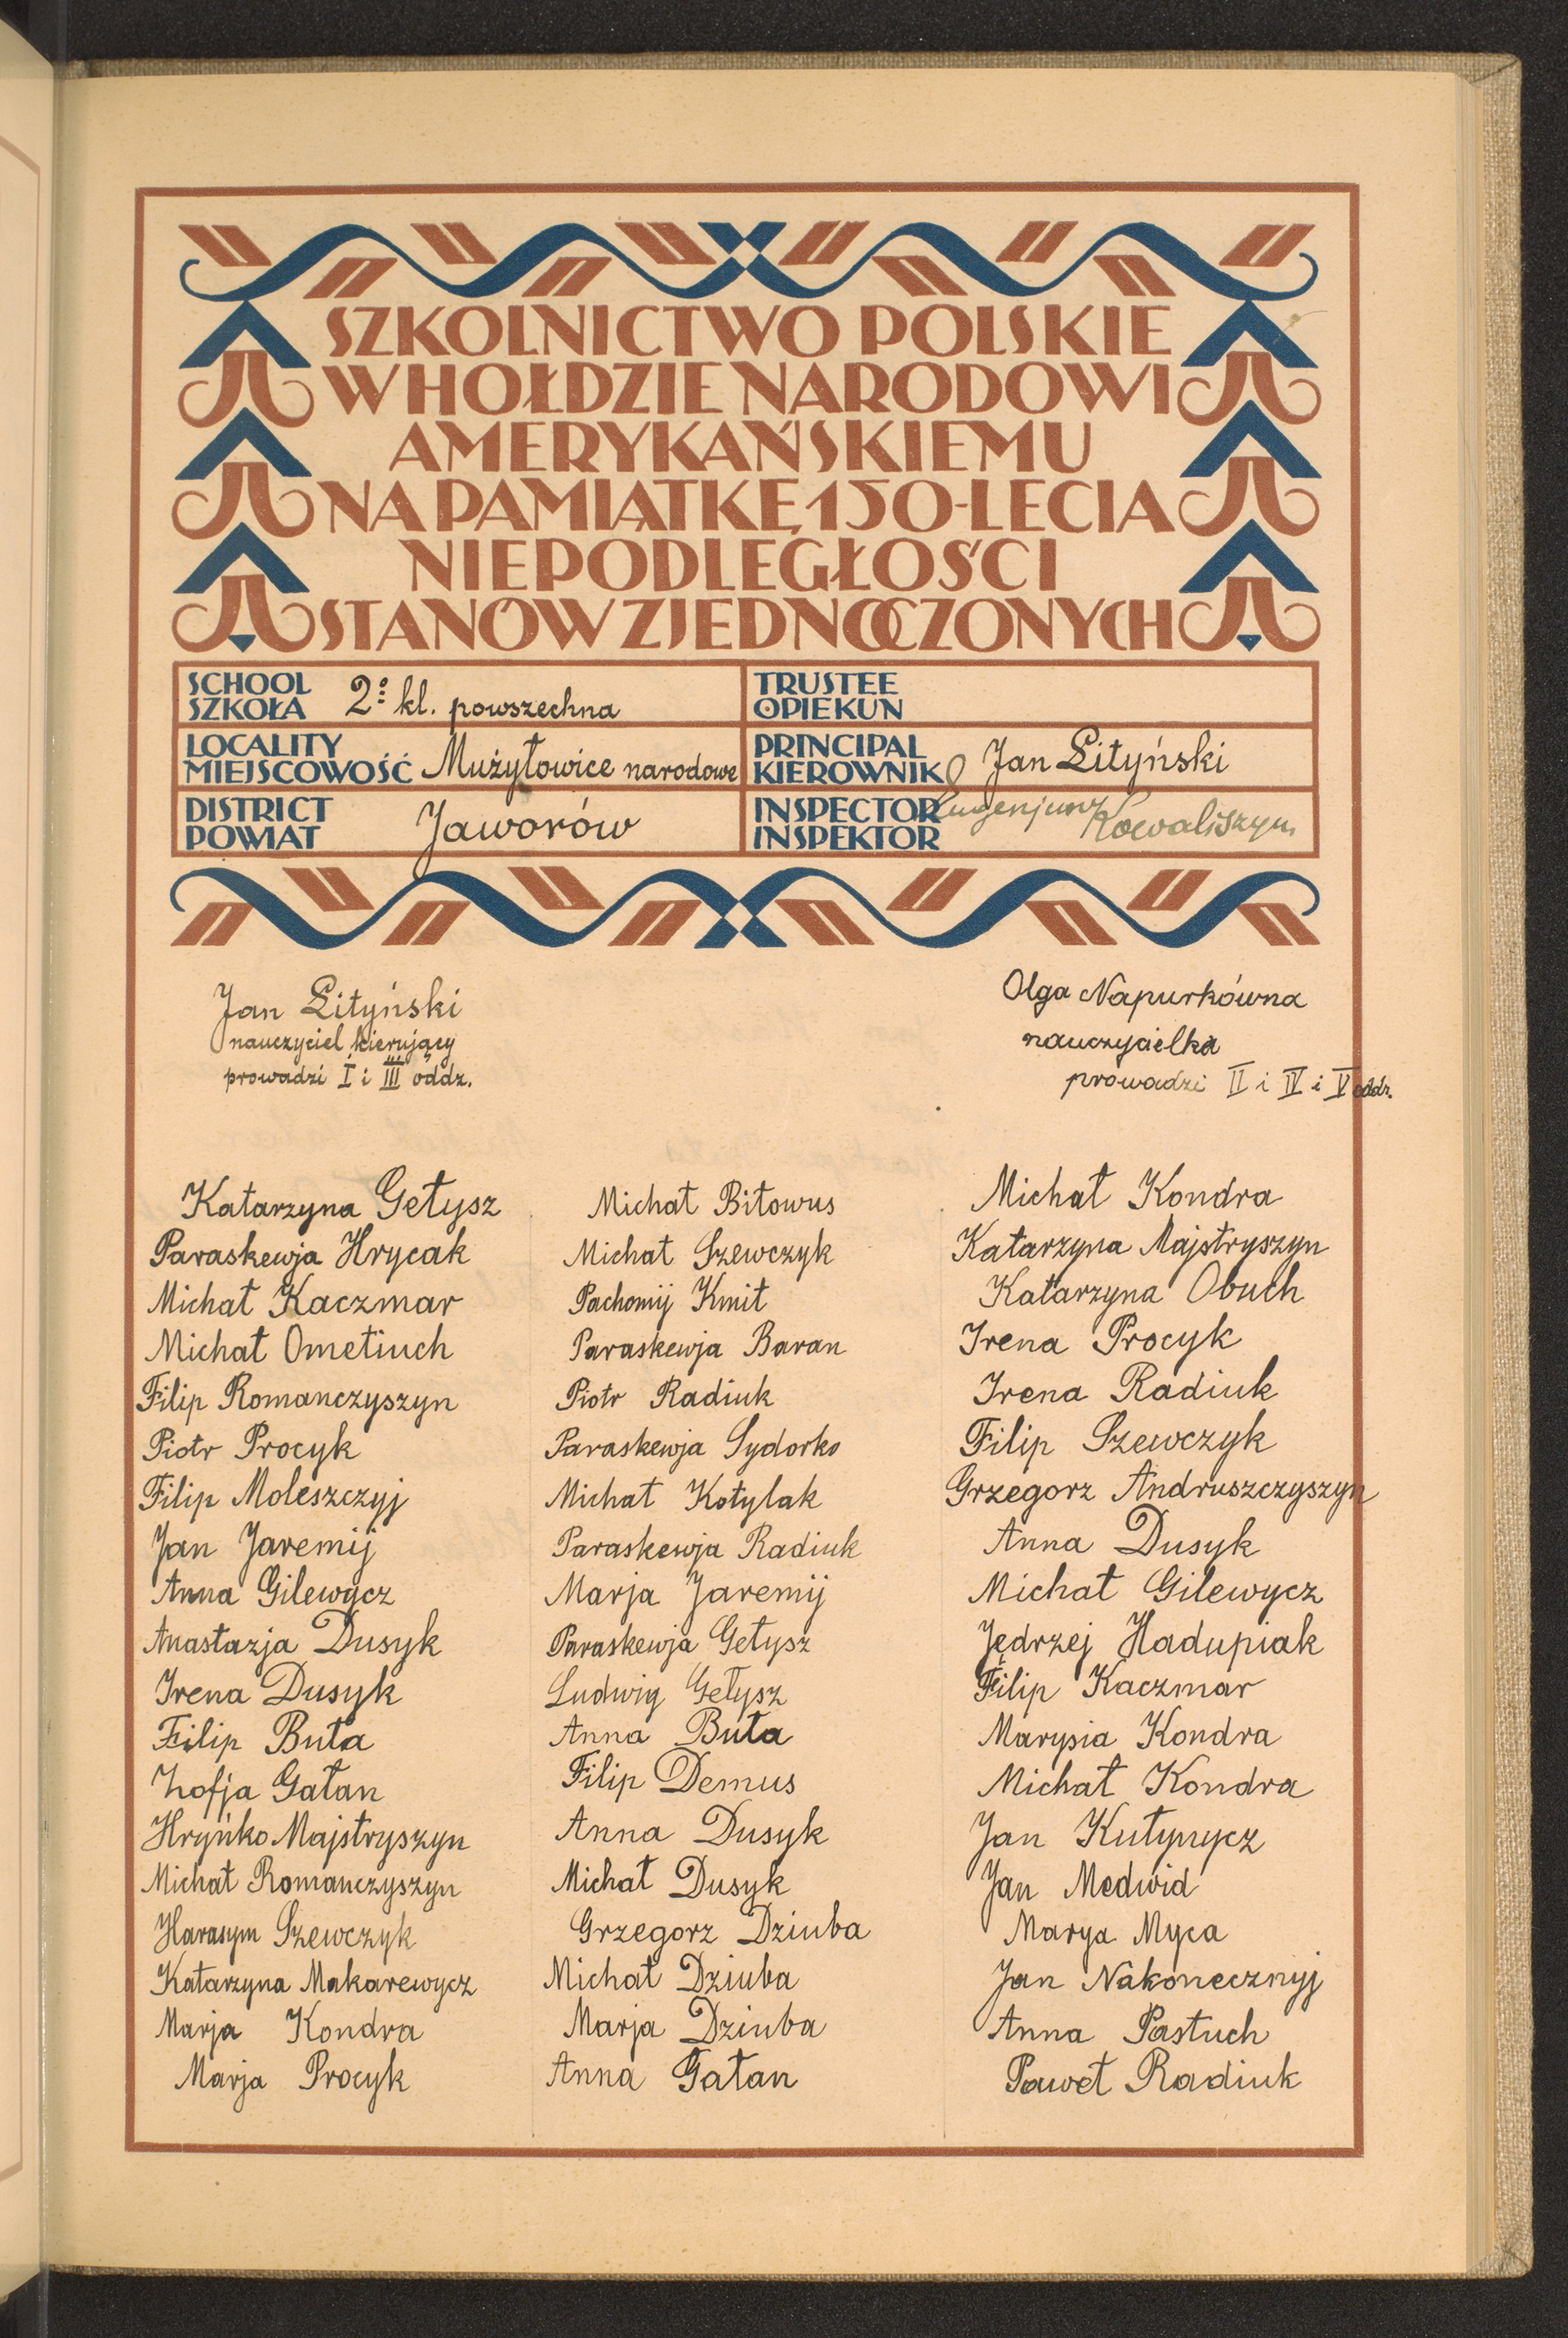 SZKOLNICTWO POLSKIE
W HOŁDZIE NARODOWI
AMERYKAŃSKIEMU
NA PAMIĄTKĘ 150-LECIA
NIEPODLEGŁOŚCI
STANÓW ZJEDNOCZONYCH
SCHOOL
SZKOŁA 2: kl. powszechna
TRUSTEE
OPIEKUN
LOCALITY
MIEJSCOWOŚĆ Mużyłowice narodowe
PRINCIPAL
KIEROWNIK Jan Lityński
DISTRICT
POWIAT Jaworów
INSPECTOR
INSPEKTOR Eugenjusz Kowaliszyn
Jan Lityński
nauczyciel kierujący
prowadzi I i III oddz.
Olga Napurkówna
nauczycielka
prowadzi II i IV i V oddz.
Katarzyna Gełysz
Paraskewja Hrycak
Michał Kaczmar
Michał Ometiuch
Filip Romanczyszyn
Piotr Procyk
Filip Moleszczyj
Jan Jaremij
Anna Gilewycz
Anastazja Dusyk
Irena Dusyk
Filip Buła
Zofja Gałan
Hryńko Majstryszyn
Michał Romanczyszyn
Harasym Szewczyk
Katarzyna Makarewycz
Marja Kondra
Marja Procyk
Michał Biłowus
Michał Szewczyk
Pachomij Kmit
Paraskewja Baran
Piotr Radiuk
Paraskewja Sydorko
Michał Kotylak
Paraskewja Radiuk
Marja Jaremij
Paraskewja Gełysz
Ludwig Gełysz
Anna Buła
Filip Demus
Anna Dusyk
Michał Dusyk
Grzegorz Dziuba
Michał Dziuba
Marja Dziuba
Anna Gałan
Michał Kondra
Katarzyna Majstryszyn
Katarzyna Obuch
Irena Procyk
Irena Radiuk
Filip Szewczyk
Grzegorz Andruszczyszyn
Anna Dusyk
Michał Gilewycz
Jędrzej Hadupiak
Filip Kaczmar
Marysia Kondra
Michał Kondra
Jan Kułynycz
Jan Medwid
Marya Myca
Jan Nakonecznyj
Anna Pastuch
Paweł Radiuk